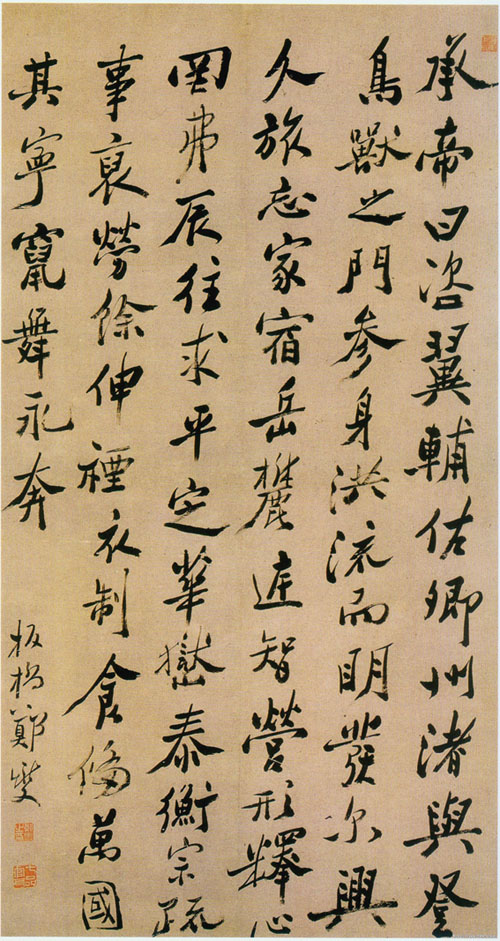 承帝曰咨翼輔佐卿州渚與登
鳥獸之門参身洪流而明發尔興
久旅忘家宿岳麓庭智營形釋心
罔弗辰往求平定華嶽泰衡宗疏
事裒勞餘伸禋衣制食備萬國
其寧竄舞永奔
板橋鄭燮